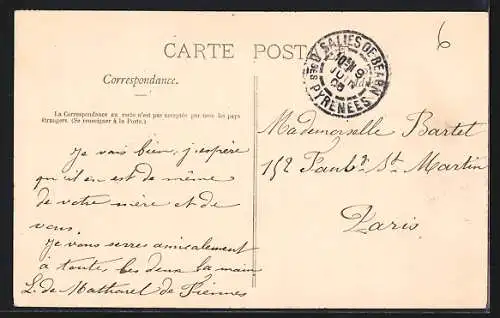 CARTE POSTALE
6
SALIES DE BEARN
9
JUIN
PYRENEES
Correspondance.
La Correspondance au recto n'est pas acceptée par tous les pays
étrangers. (Se renseigner à la Poste.)
Je vais bien, j'espère
qu'il en est de même
de votre mère et de
vous.
Je vous serres amicalement
à toutes les deux la main
L. de Matharel de Fiennes
Mademoiselle Bartet
152 Faubg St Martin
Paris